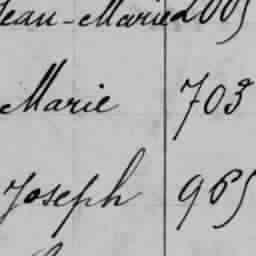 Jean-Marie 2005
Marie 703
Joseph 965